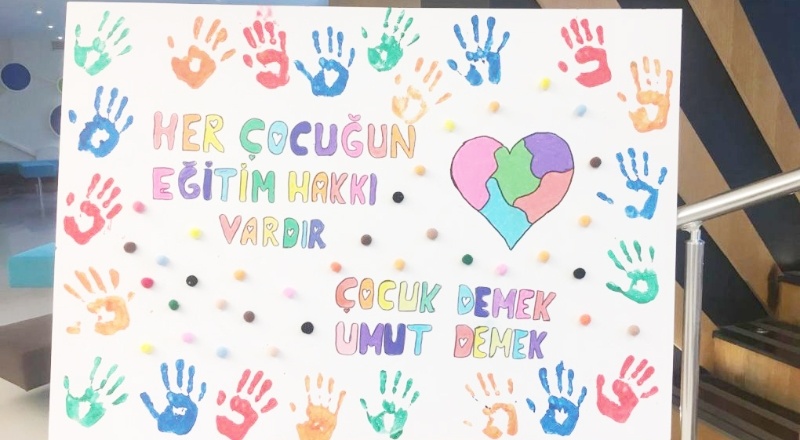 HER ÇOCUĞUN
EĞİTİM HAKKI
VARDIR
ÇOCUK DEMEK
UMUT DEMEK